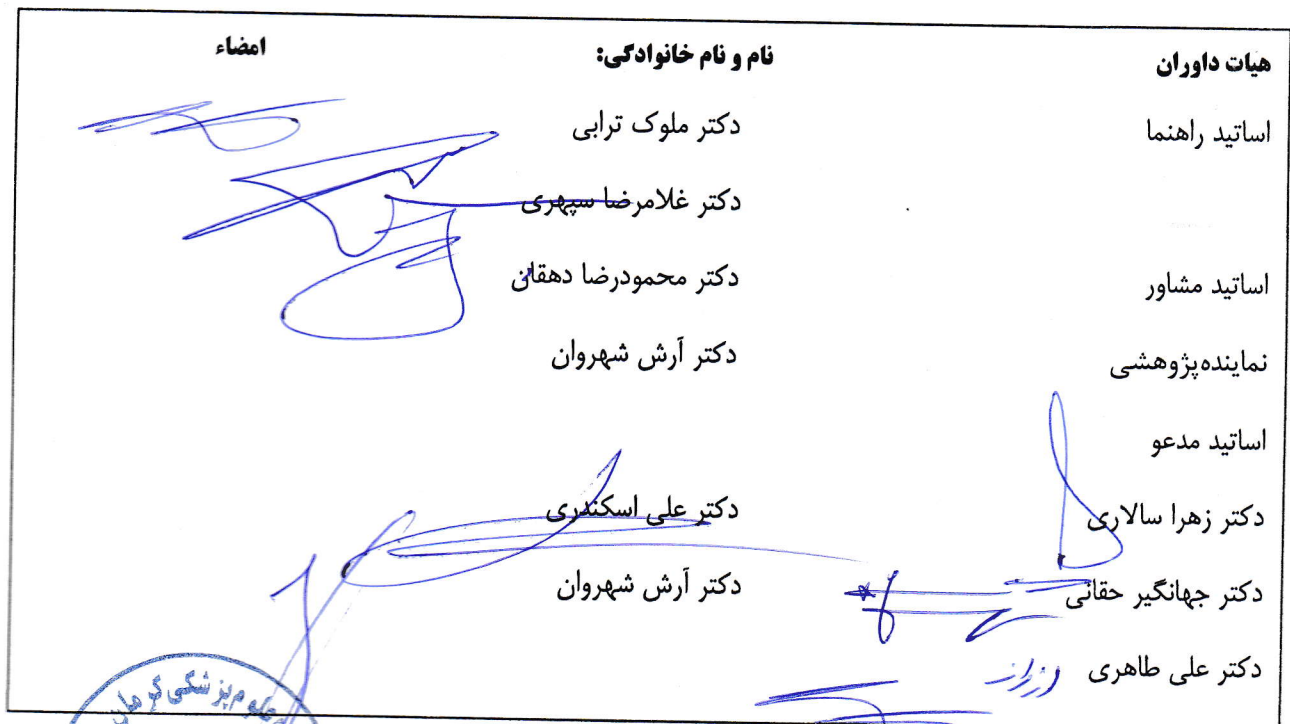 هیات داوران نام و نام خانوادگی: امضاء
اساتید راهنما دکتر ملوک ترابی
دکتر غلامرضا سپهری
اساتید مشاور دکتر محمودرضا دهقان
نماینده‌پژوهشی دکتر آرش شهروان
اساتید مدعو
دکتر زهرا سالاری دکتر علی اسکندری
دکتر جهانگیر حقانی دکتر آرش شهروان
دکتر علی طاهری
علوم پزشکی کرمان